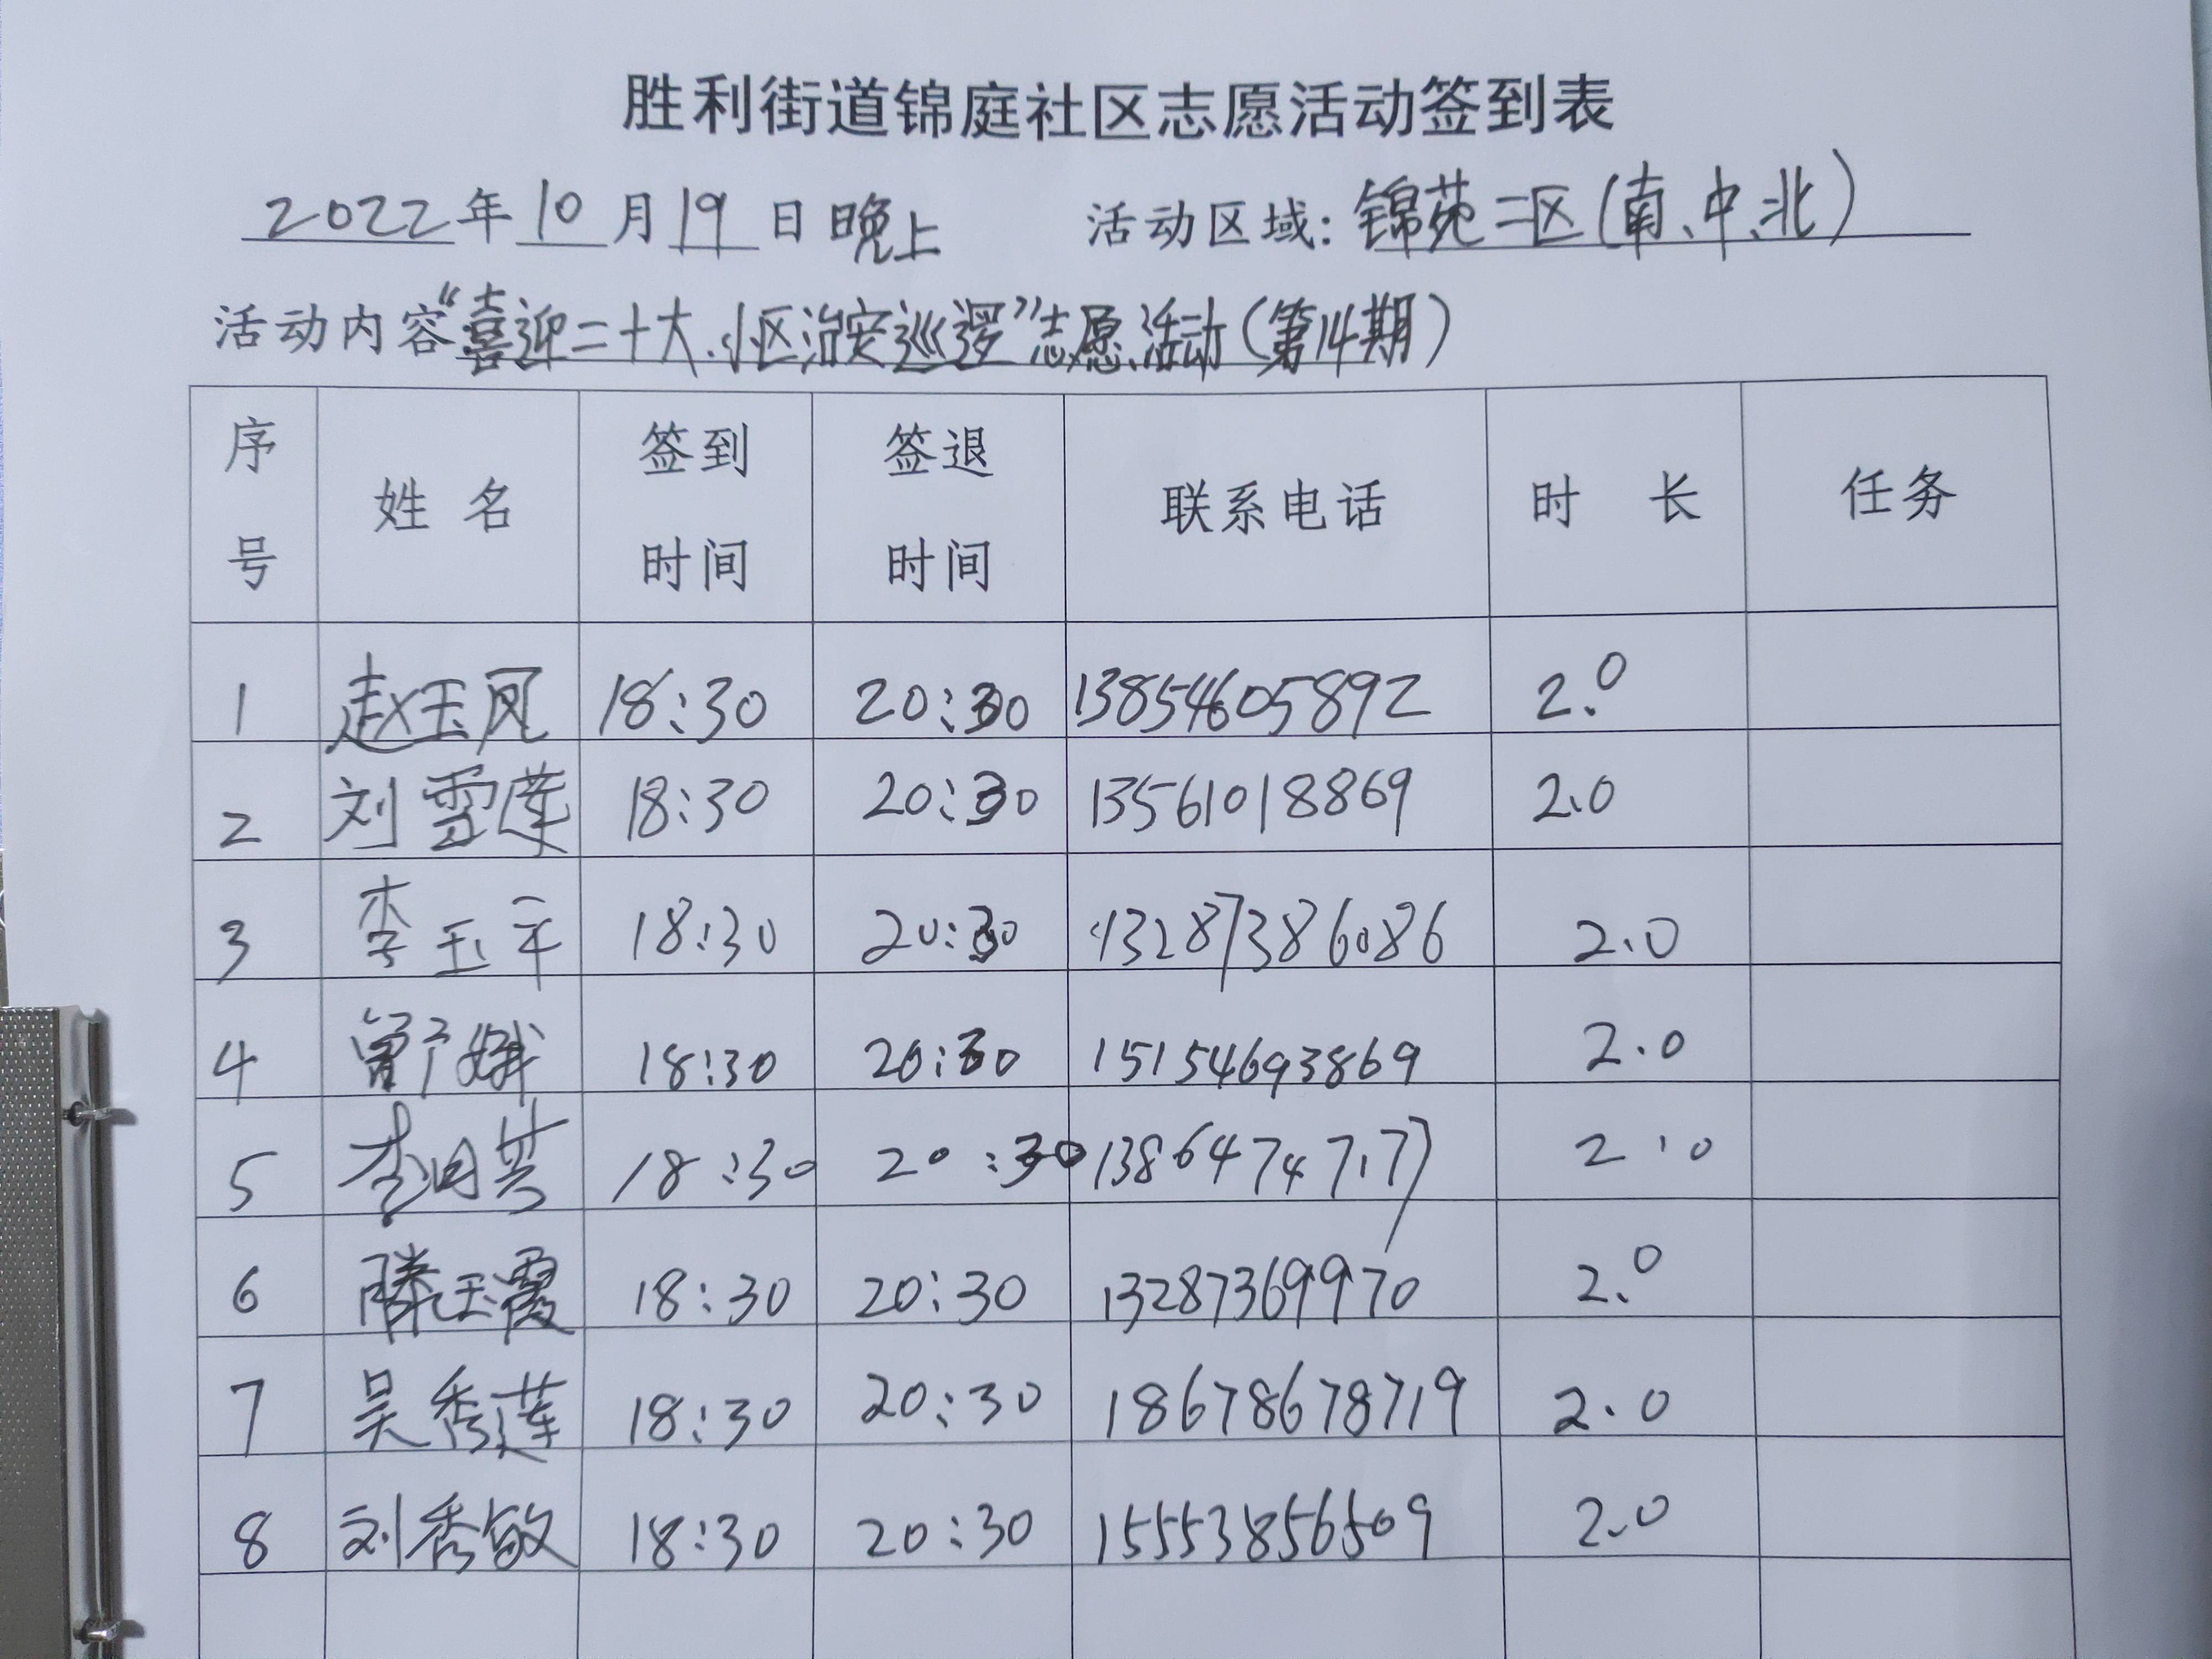 胜利街道锦庭社区志愿活动签到表
2022年10月19日晚上 活动区域:锦苑二区(南、中、北)
活动内容“喜迎二十大、小区治安巡逻”志愿活动(第14期)
序号 姓名 签到时间 签退时间 联系电话 时长 任务
1 赵玉凤 18:30 20:30 13854605892 2.0
2 刘雪莲 18:30 20:30 13561018869 2.0
3 李玉平 18:30 20:30 13287386086 2.0
4 曾广娥 18:30 20:30 15154693869 2.0
5 李 18:30 20:30 13864747177 2.0
6 滕玉霞 18:30 20:30 13287369970 2.0
7 吴秀莲 18:30 20:30 18678678719 2.0
8 刘秀敏 18:30 20:30 15553856509 2.0